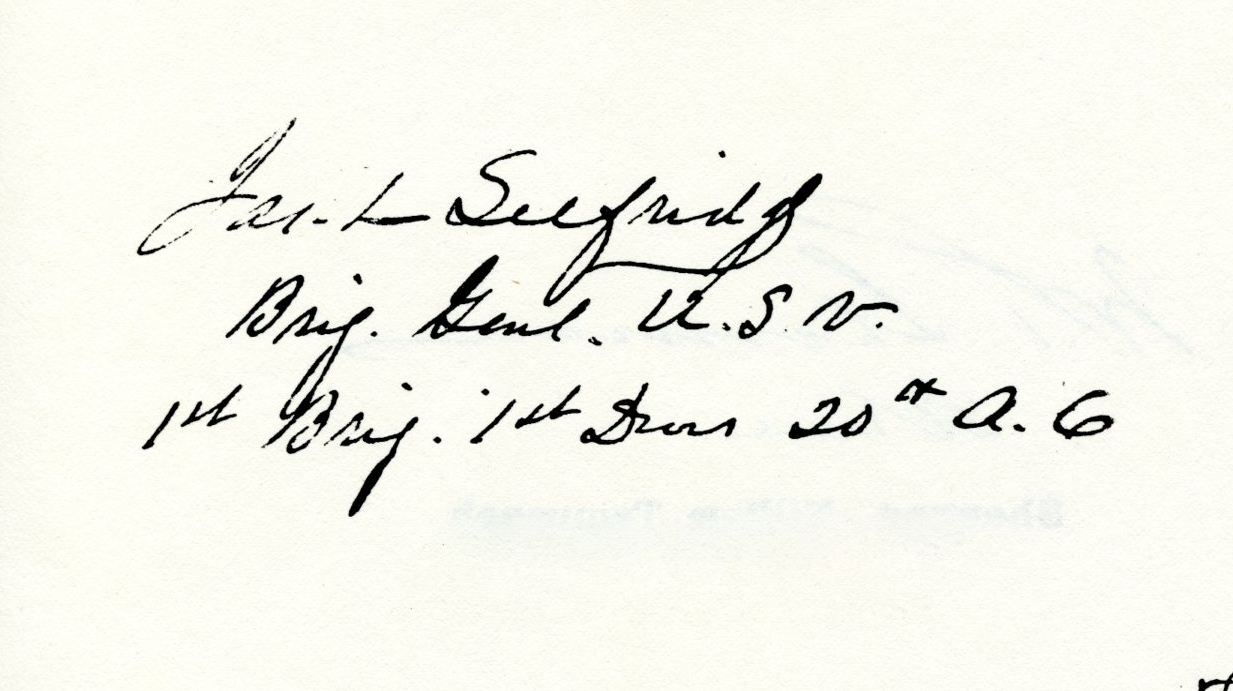 Jas. L Selfridge
Brig. Genl. U.S.V.
1st Brig. 1st Divn 20th A.C